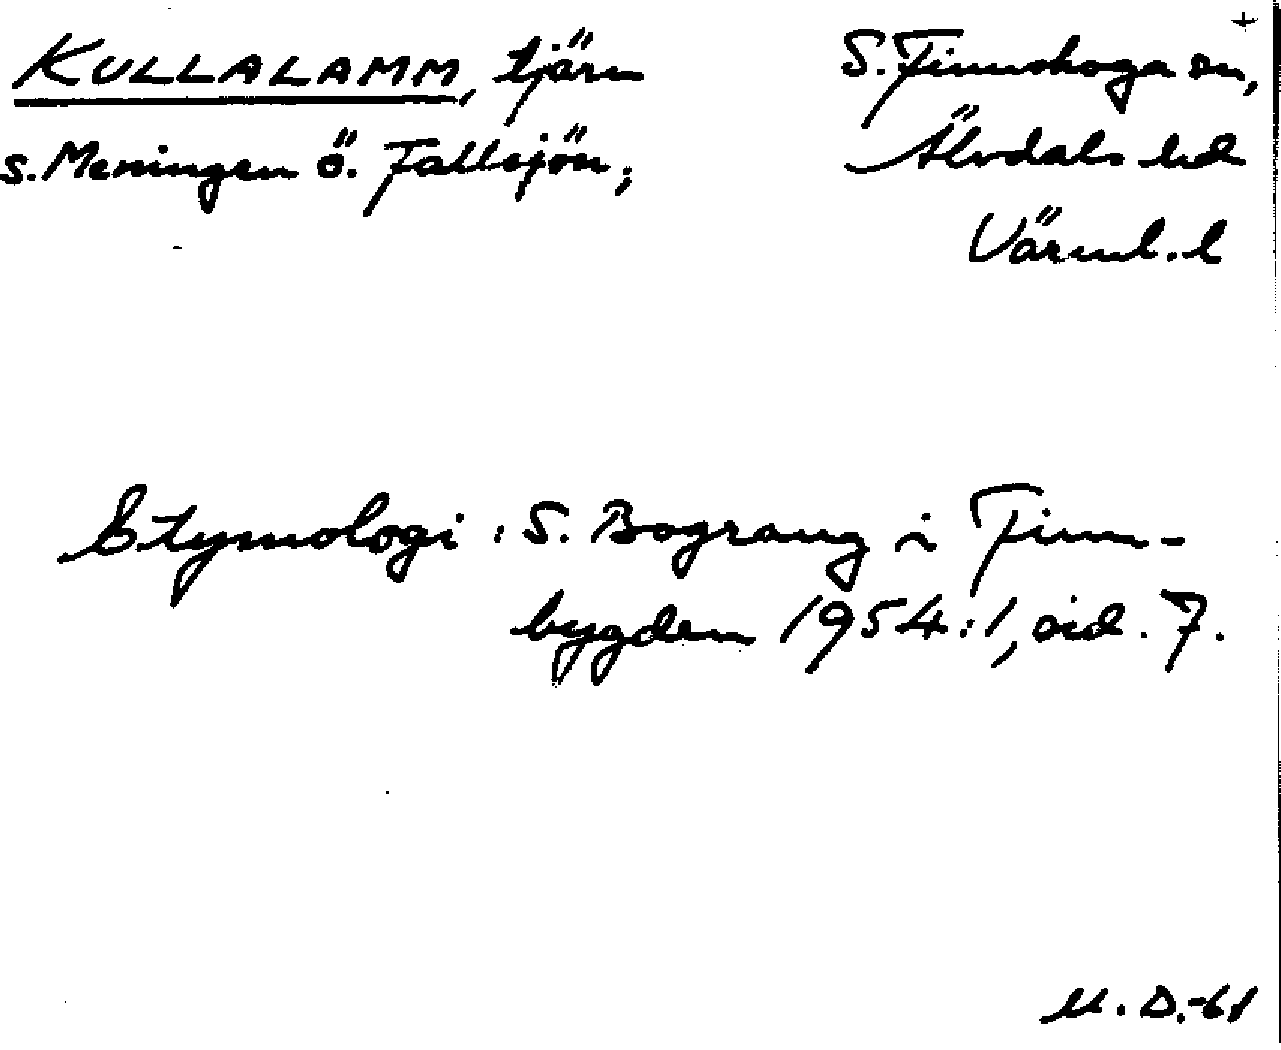 KULLALAMM, tjärn
s. Meningen ö. Fallsjön;
S. Finnskoga sn,
Älvdals hd
Värml. l
Etymologi: S. Bograng i Finn-
bygden 1954:1, sid. 7.
M. D. -61